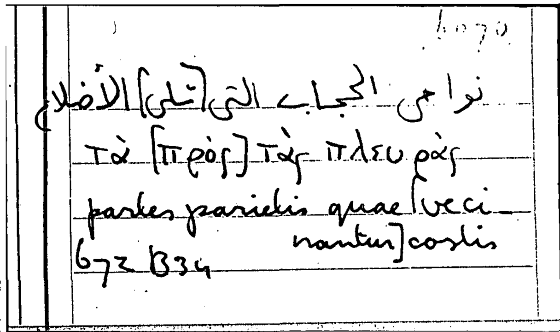 نواحى الحجاب التى [تلى] الأضلاع
τὰ [πρὸς] τὰς πλευράς
partes parietis quae [veci-
nantur] costis
672 B34